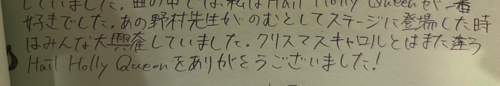 していました。曲の中では、私はHail Holly Queenが一番
好きでした。あの野村先生がのむとしてステージに登場した時
はみんな大興奮していました。クリスマスキャロルとはまた違う
Hail Holly Queenをありがとうございました!